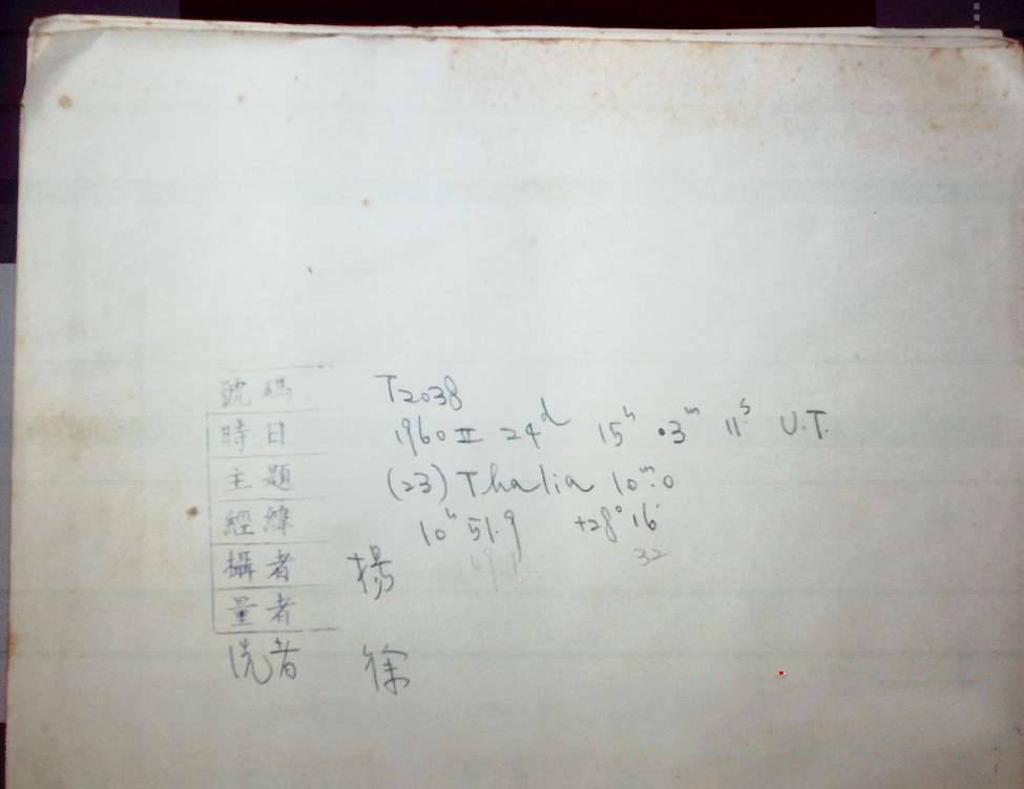 號碼 T2038
時日 1960 II 24d 15h .3m 11s U.T.
主題 (23) Thalia 10m.0
經緯 10h 51.9 +28° 16'
32
攝者 楊
量者
洗者 徐